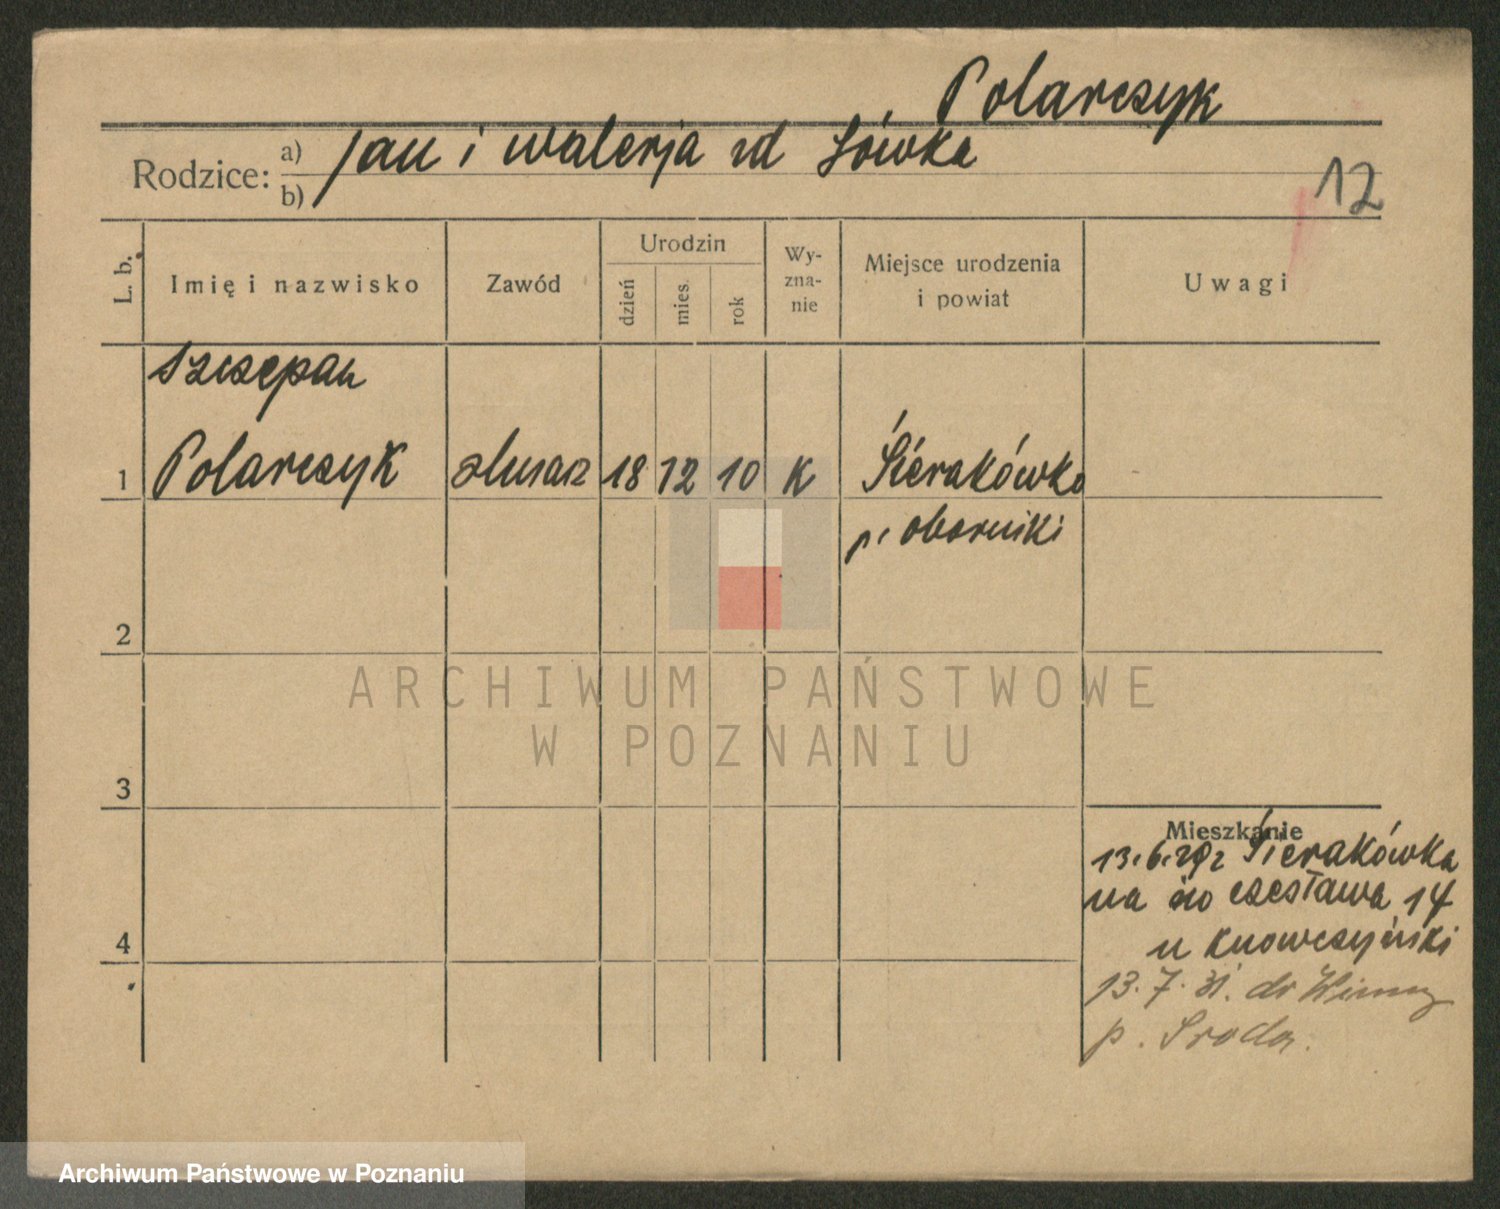 Polarczyk
Rodzice: a) Jan i Walerja zd Sówka
b)
12
L. b.
Imię i nazwisko
Zawód
Urodzin
dzień
mies.
rok
Wy-
zna-
nie
Miejsce urodzenia
i powiat
Uwagi
Szczepan
1 Polarczyk ślusarz 18 12 10 K Sierakówko
p. oborniki
2
ARCHIWUM PAŃSTWOWE
W POZNANIU
3
Mieszkanie
13.6.29 z Sierakówka
na czesława 14
u
4
13.7.31. do
p. Sroda.
Archiwum Państwowe w Poznaniu